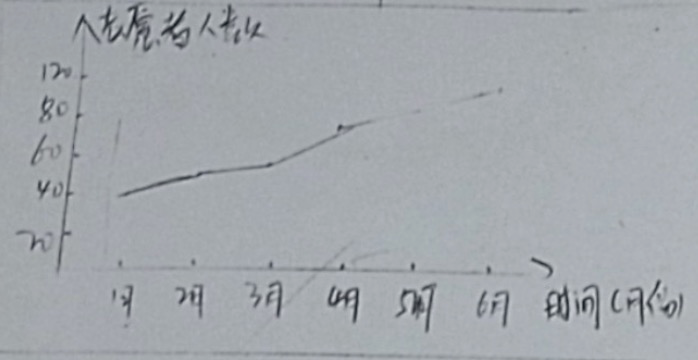 志愿者人数
120
80
60
40
20
1月 2月 3月 4月 5月 6月 时间(月份)